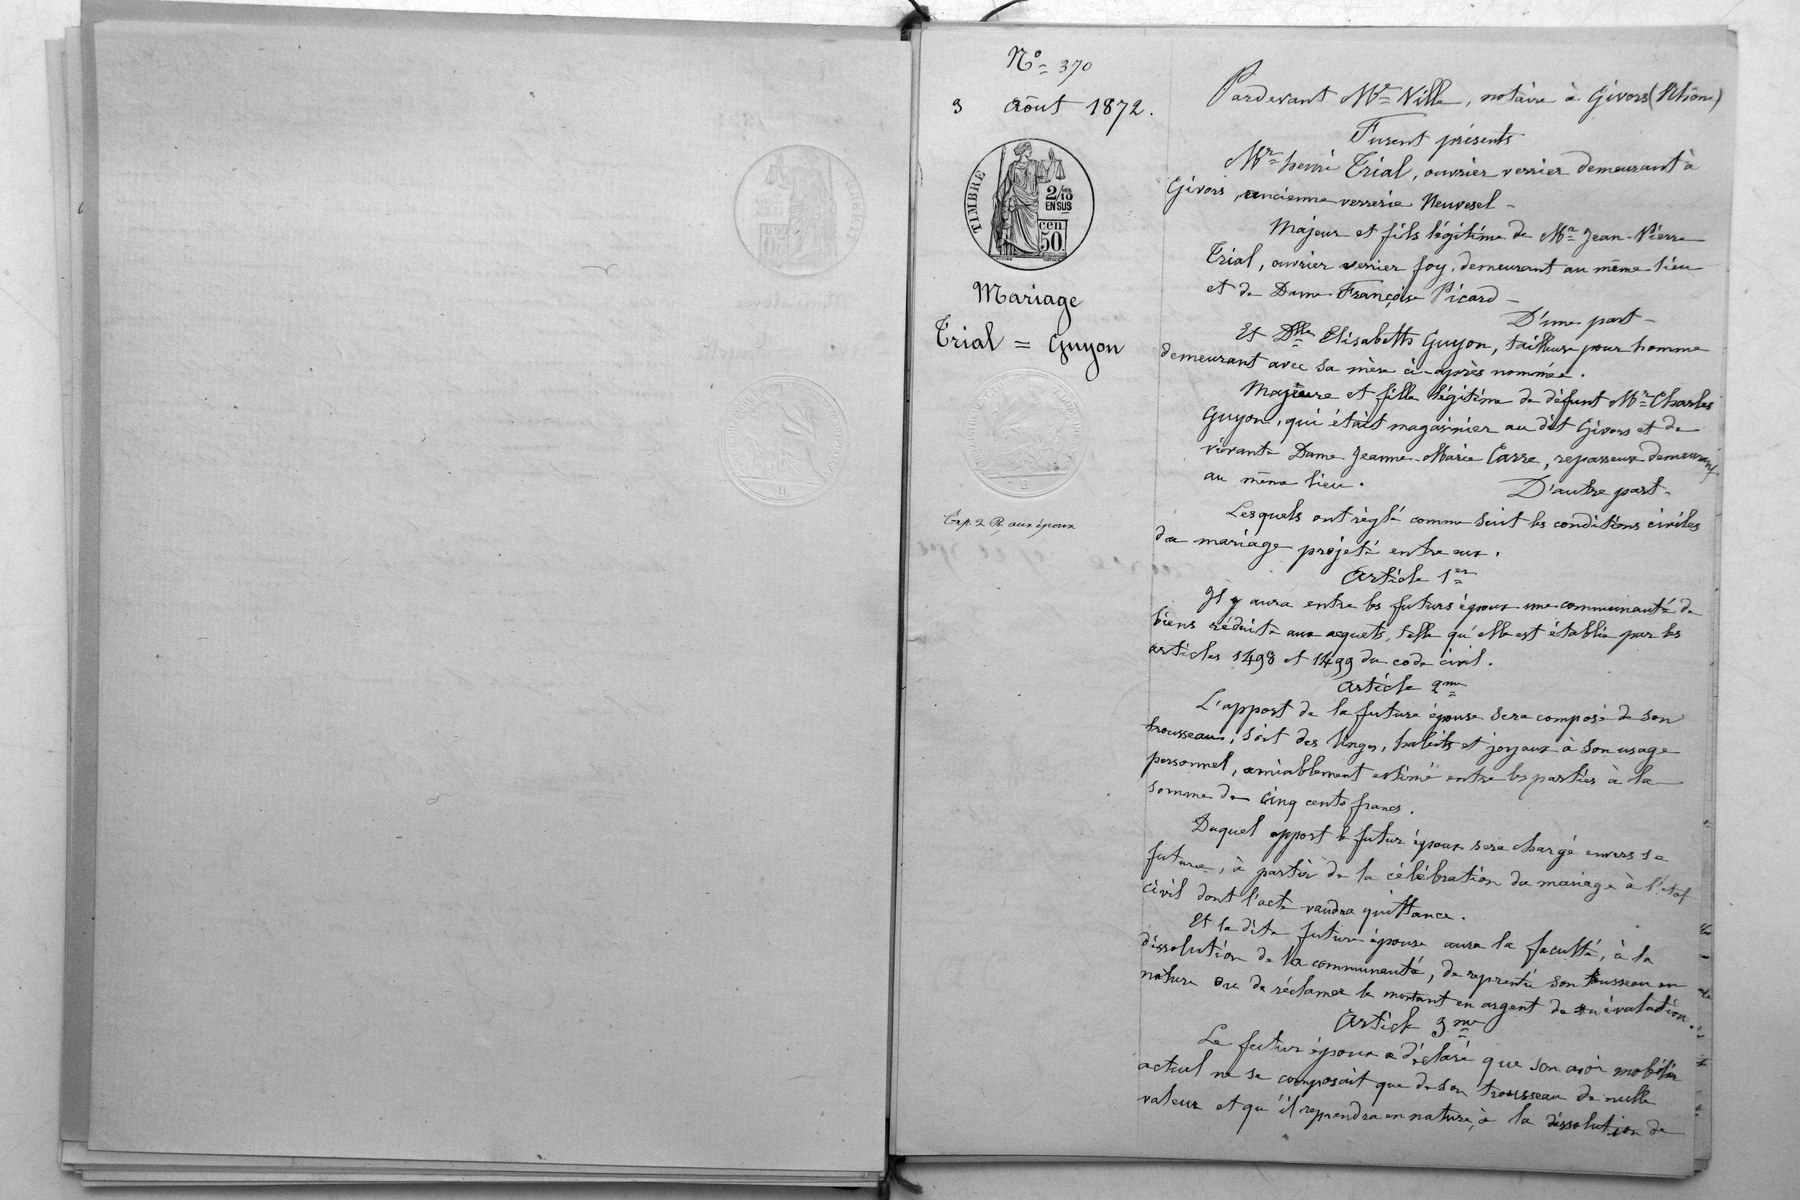 N° 370
3 Août 1872.
TIMBRE
2/10
EN SUS
cen.
50.
Mariage
Trial = Guyon
Exp. 2 R. aux époux
Pardevant Me Ville, notaire à Givors (Rhône)
Furent présents
Mr henri Trial, ouvrier verrier demeurant à
Givors, ancienne verrerie Neuvesel -
Majeur et fils légitime de Mr Jean-Pierre
Trial, ouvrier verrier foy, demeurant au même lieu
et de Dame Françoise Picard -
D'une part -
Et Dlle Elisabeth Guyon, tailleuse pour homme
demeurant avec sa mère ci-après nommée.
Majeure et fille légitime de défunt Mr Charles
Guyon, qui était magasinier au dit Givors et de
vivante Dame Jeanne-Marie Carre, repasseuse demeurant
au même lieu.
D'autre part -
Lesquels ont réglé comme suit les conditions civiles
du mariage projeté entre eux.
Article 1er
Il y aura entre les futurs époux une communauté de
biens réduite aux acquets, telle qu'elle est établie par les
articles 1498 et 1499 du code civil.
Article 2me
L'apport de la future épouse sera composé de son
trousseau, soit des linges, habits et joyaux à son usage
personnel, amiablement estimé entre les parties à la
somme de cinq cents francs.
Duquel apport le futur époux sera chargé envers sa
future, à partir de la célébration du mariage à l'état
civil dont l'acte vaudra quittance.
Et la dite future épouse aura la faculté, à la
dissolution de la communauté, de reprendre son trousseau en
nature ou de réclamer le montant en argent de son évaluation.
Article 3me
Le futur époux a déclaré que son avoir mobilier
actuel ne se composait que de son trousseau de nulle
valeur et qu'il reprendra en nature, à la dissolution de